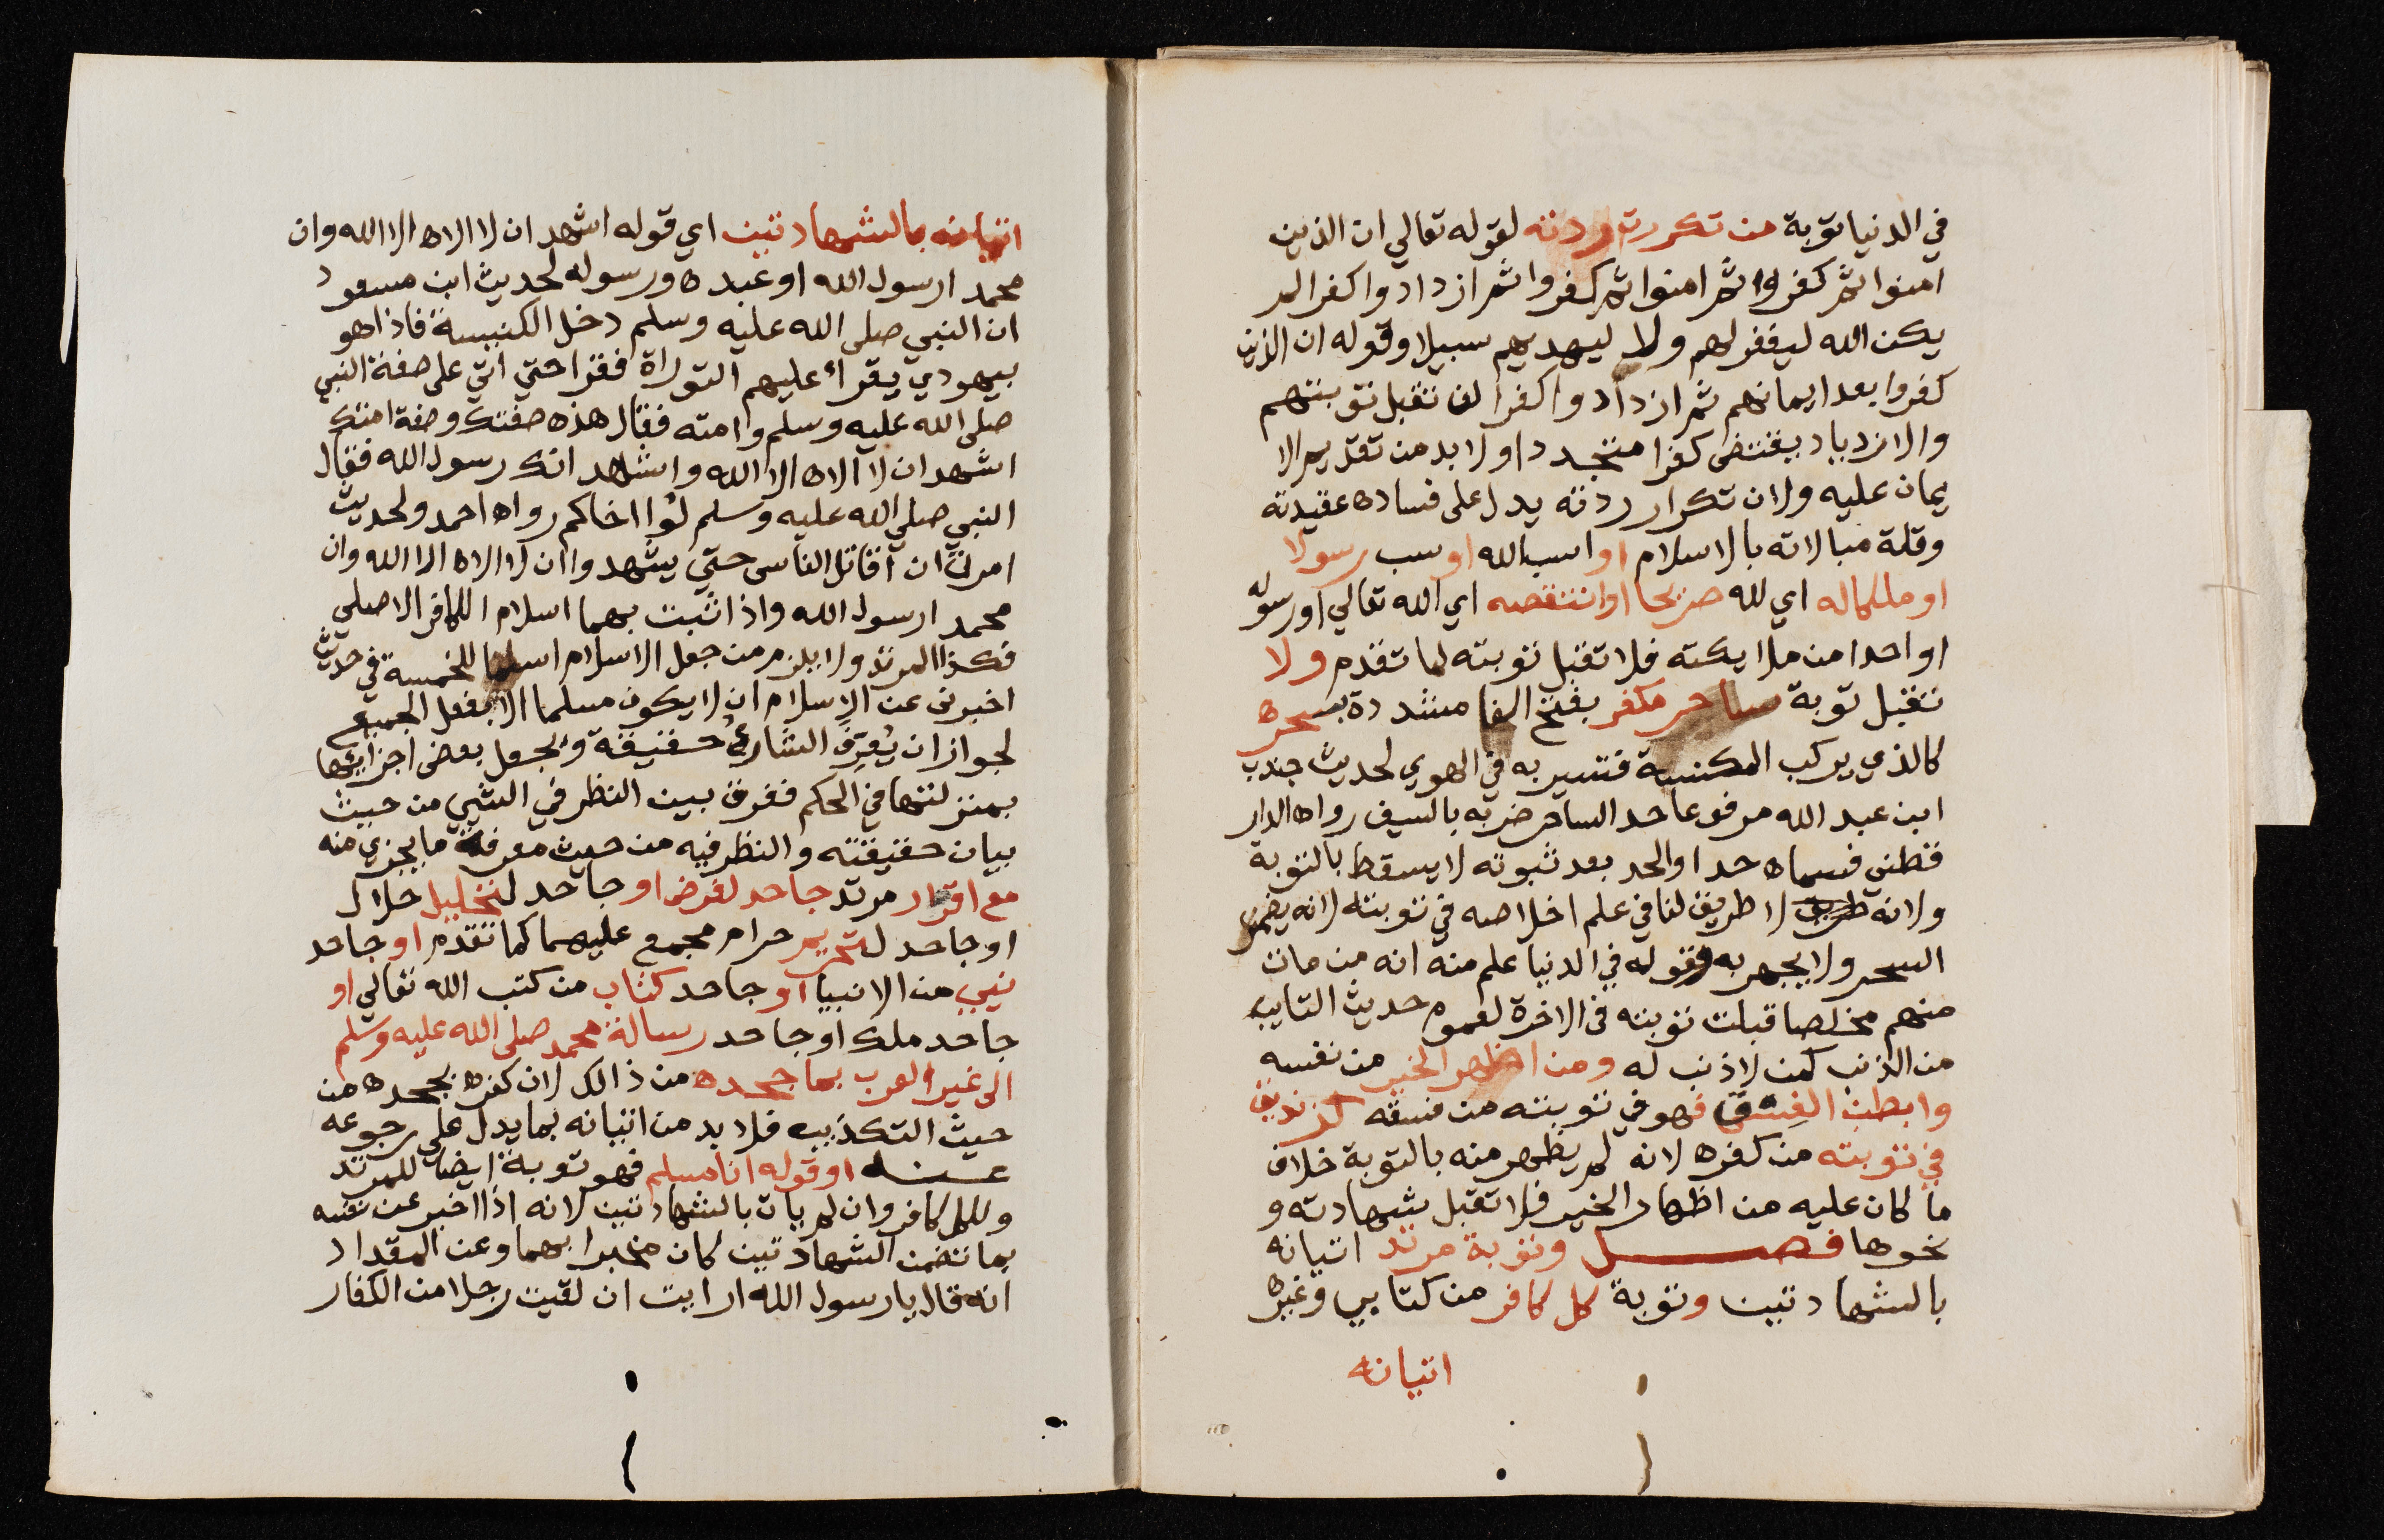 في الدنيا توبة من تكررت ردته لقوله تعالي ان الذين
امنوا ثم كفروا ثم امنوا ثم كفروا ثم ازدادوا كفرا لم
يكن الله ليغفر لهم ولا ليهديهم سبيلا وقوله ان الذين
كفروا بعد ايمانهم ثم ازدادوا كفرا لن تقبل توبتهم
والازدياد يقتضى كفرا متجددا ولا بد من تقديم الا
يمان عليه ولان تكرار ردته يدل على فساده عقيدته
وقلة مبالاته بالاسلام او اسب الله او سب رسولا
او ملكا له اي لله صريحا او انتقصه اي الله تعالي او رسوله
او احدا من ملايكته فلا تقبل توبته لما تقدم ولا
تقبل توبة ساحر مكفر بفتح الفا مشددة بسحره
كالذي يركب المكنسة فتسير به في الهوي لحديث جندب
ابن عبد الله مرفوعا حد الساحر ضربه بالسيف رواه الدار
قطني فسماه حدا والحد بعد ثبوته لا يسقط بالتوبة
ولانه لا طريق لنا في علم اخلاصه في توبته لانه يضمر
السحر ولا يجهر به وقوله في الدنيا علم منه انه من مات
منهم مخلصا قبلت توبته فى الاخرة لعموم حديث التايب
من الذنب كمن لا ذنب له ومن اظهر الخير من نفسه
وابطن الفسق فهو في توبته من فسقه كزنديق
في توبته من كفره لانه لم يظهر منه بالتوبة خلاف
ما كان عليه من اظهار الخير فلا تقبل شهادته و
نحوها فصل وتوبة مرتد اتيانه
بالشهادتين وتوبة كل كافر من كتابي وغيره
اتيانه
اتيانه بالشهادتين اي قوله اشهد ان لا الاه الا الله وان
محمد ارسول الله او عبده ورسوله لحديث ابن مسعود
ان النبي صلى الله عليه وسلم دخل الكنيسة فاذا هو
بيهودي يقراء عليهم التوراة فقرا حتي اتي على صفة النبي
صلى الله عليه وسلم وامته فقال هذه صفتك وصفة امتك
اشهد ان لا الاه الا الله واشهد انك رسول الله فقال
النبي صلي الله عليه وسلم لوا اخاكم رواه احمد ولحديث
امرت ان اقاتل الناس حتي يشهدوا ان لا الاه الا الله وان
محمد ارسول الله واذا ثبت بهما اسلام الكافر الاصلي
فكذا المرتد ولا يلزم من جعل الاسلام اسما للخمسة في حديث
اخبرني عن الاسلام ان لا يكون مسلما الا بفعل الجميع
لجواز ان يُعرِّف الشارعُ حقيقة ويجعل بعض اجزائها
بمنزلتها في الحكم ففرق بين النظر في الشيي من حيث
بيان حقيقته والنظر فيه من حيث معرفة ما يجزي منه
مع اقرار مرتد جاحد لفرض او جاحد لتحليل حلال
او جاحد لتحريم حرام مجمع عليهما كما تقدم او جاحد
نبي من الانبيا او جاحد كتاب من كتب الله تعالي او
جاحد ملك او جاحد رسالة محمد صلى الله عليه وسلم
الى غير العرب بما جحده من ذالك لان كفره بجحده من
حيث التكذيب فلا بد من اتيانه بما يدل على رجوعه
عنه او قوله انا مسلم فهو توبة ايضا للمرتد
ولكل كافر وان لم يات بالشهادتين لانه اذا اخبر عن نفسه
بما تضمن الشهادتين كان مخبرا بهما وعن المقداد
انه قال يا رسول الله ارايت ان لقيت رجلا من الكفار